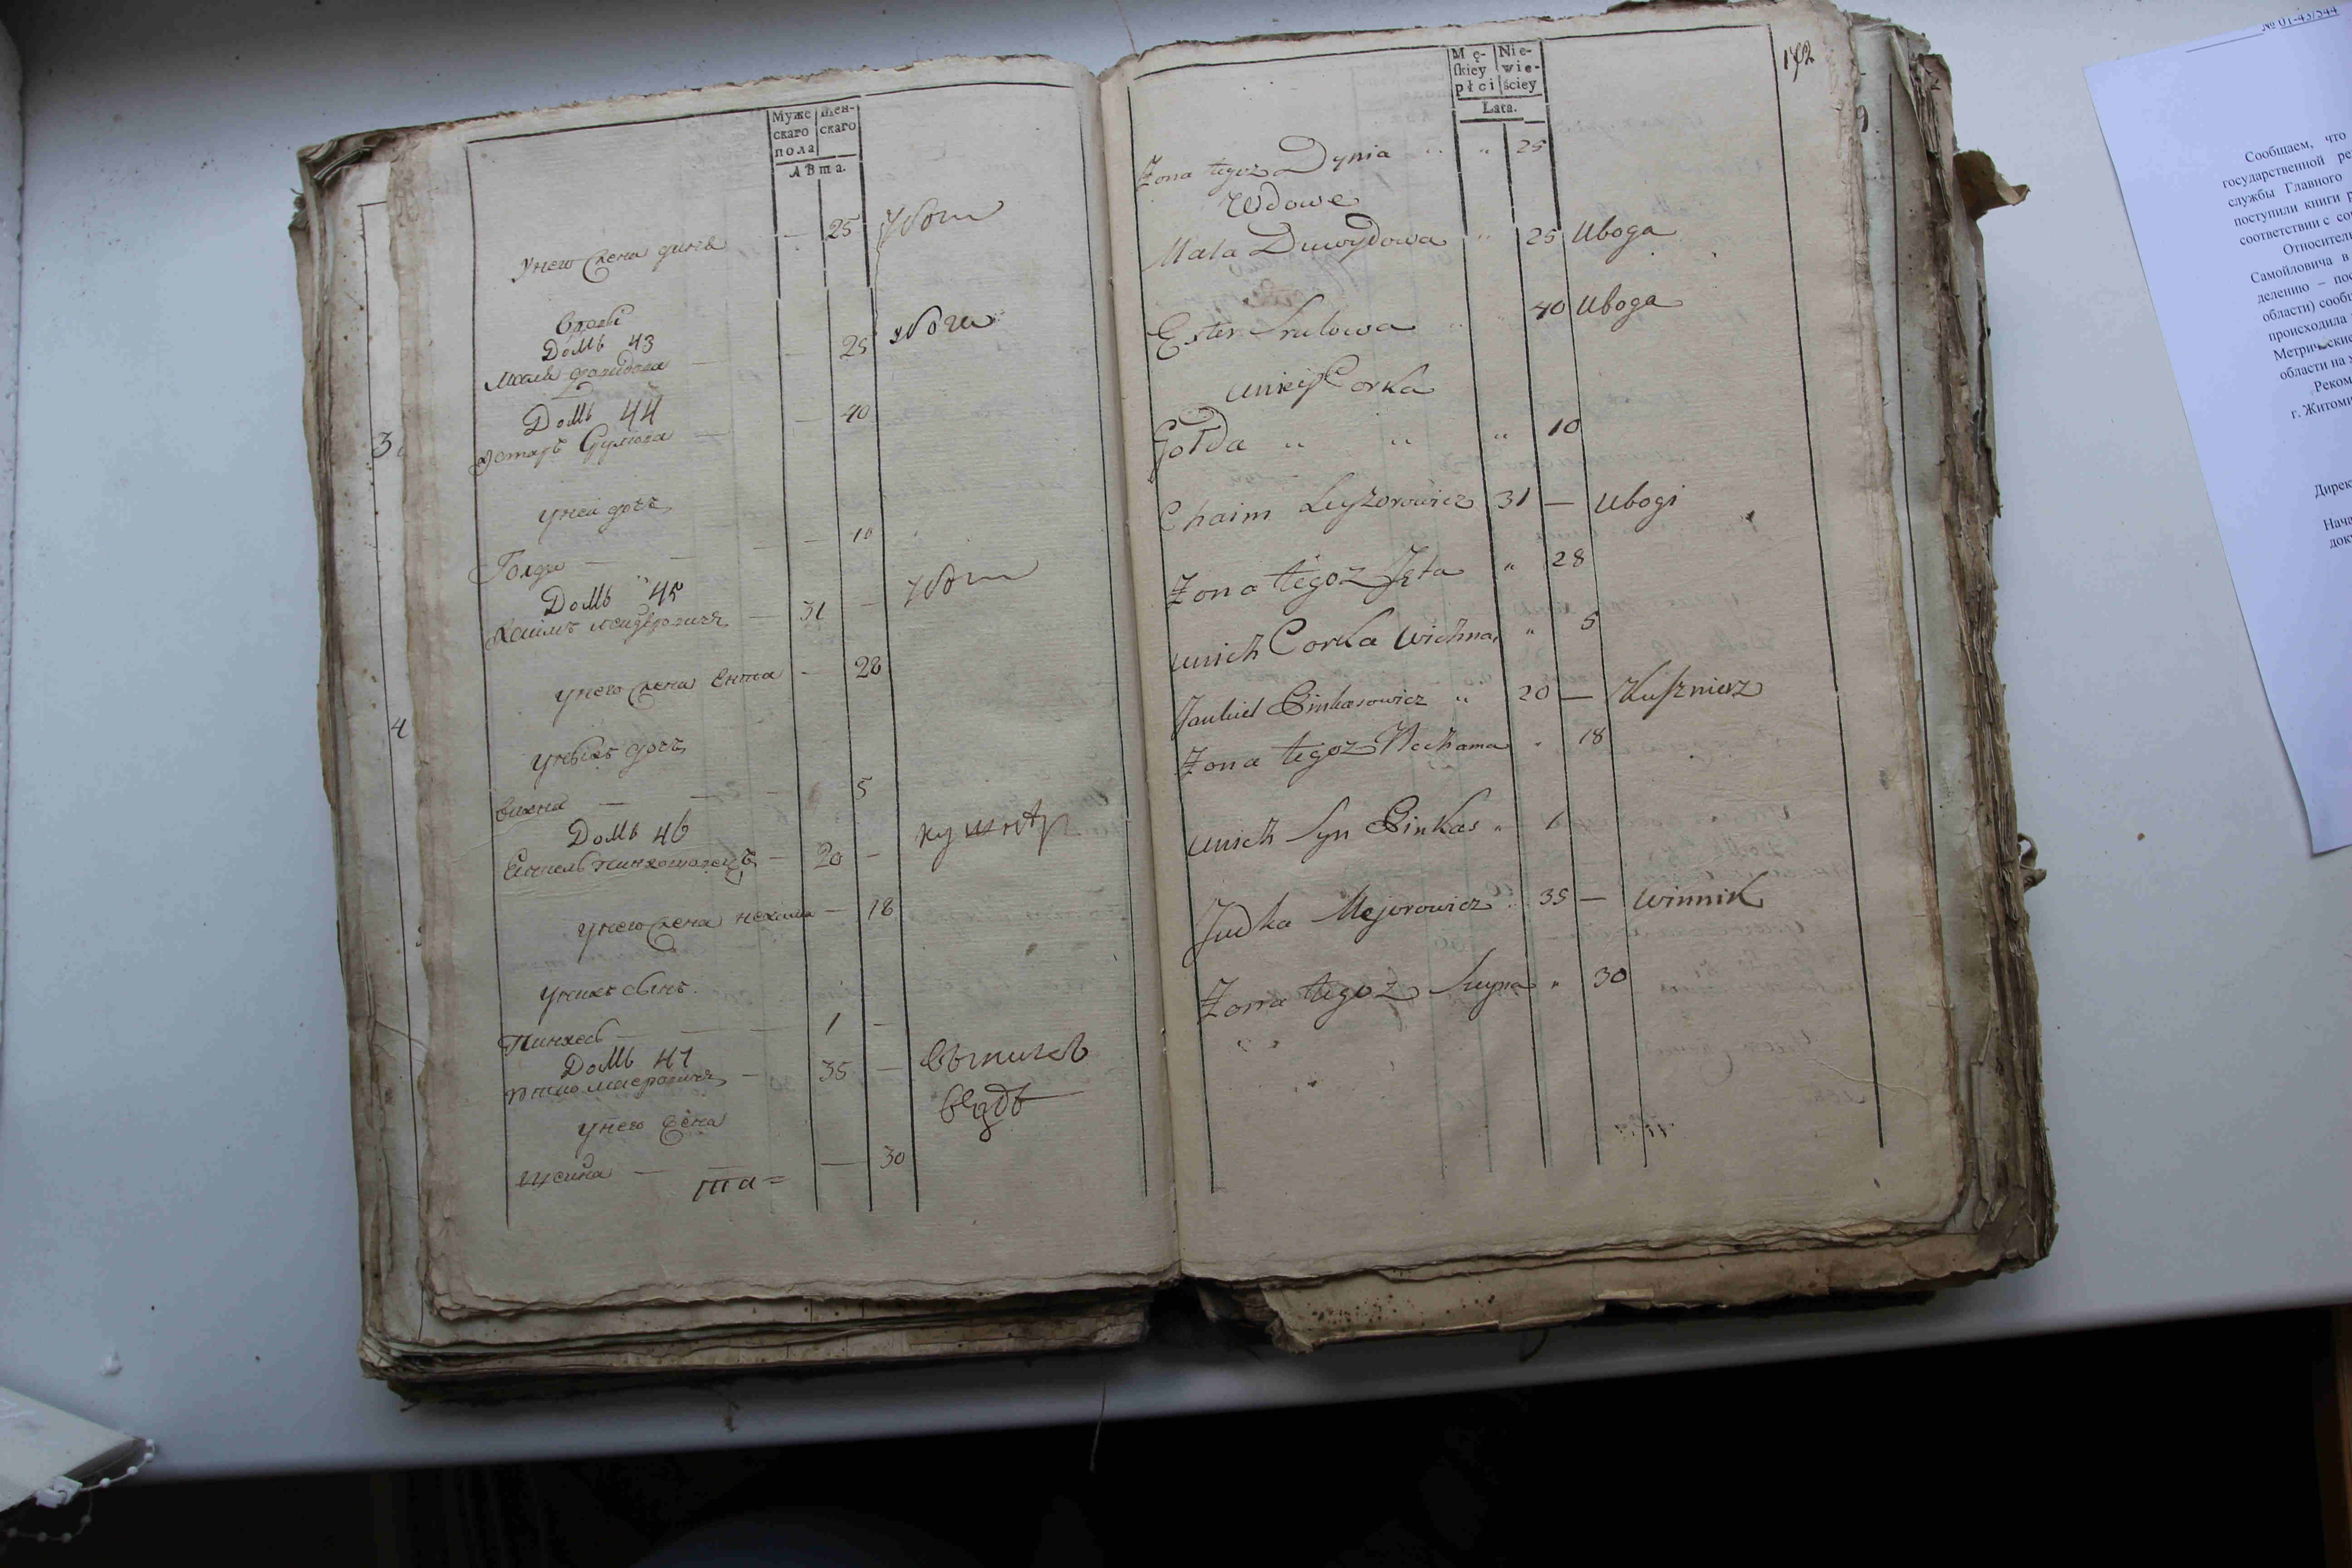 Муже
скаго
пола
Жен-
скаго
Лѣта.
у него жена дина — 25 убогъ
вдовы
Домъ 43
Маля довидова — — 25 убога
Домъ 44
Эстеръ Срулюва — — 40
у ней дочь
Голда — — — 10
Домъ 45
Хаимъ лейзеровичъ — 31 — убогъ
у него жена Ента — 28
у нихъ дочь
вихна — — — 5
Домъ 46
Янкель пинхасовичъ — 20 — кушнѣр
у него жена нехама — 18
у нихъ сынъ
Пинхасъ — — — 1 —
Домъ 47
Ютко маеровичъ — 35 —
у него жена
— — 30
та=
3
4
172
Mę-
skiey
płci
Nie-
wie-
ściey
Lata.
Zona tegoz Dynia " " 25
Wdowe
Mala Duwydowa " 25 Uboga
Ester Srulowa " 40 Uboga
uniey Corka
Golda " " " 10
Chaim Leyzorowicz 31 — Ubogi
Zona tegoz Jęta " 28
unich Corka Wichna " 5
Jankiel Pinkasowicz " 20 — Kusznierz
Zona tegoz Nechama " 18
unich Syn Pinkas " 1
Judka Mejorowicz " 35 — Winnik
Zona tegoz " 30
№ 01-43/344
Сообщаем, что
государственной ре
службы Главного
поступили книги р
соответствии с со
Относитель
Самойловича в
делению – пос
области) сооб
происходила
Метрические
области на х
Реком
г. Житоми
Дирек
Нача
док